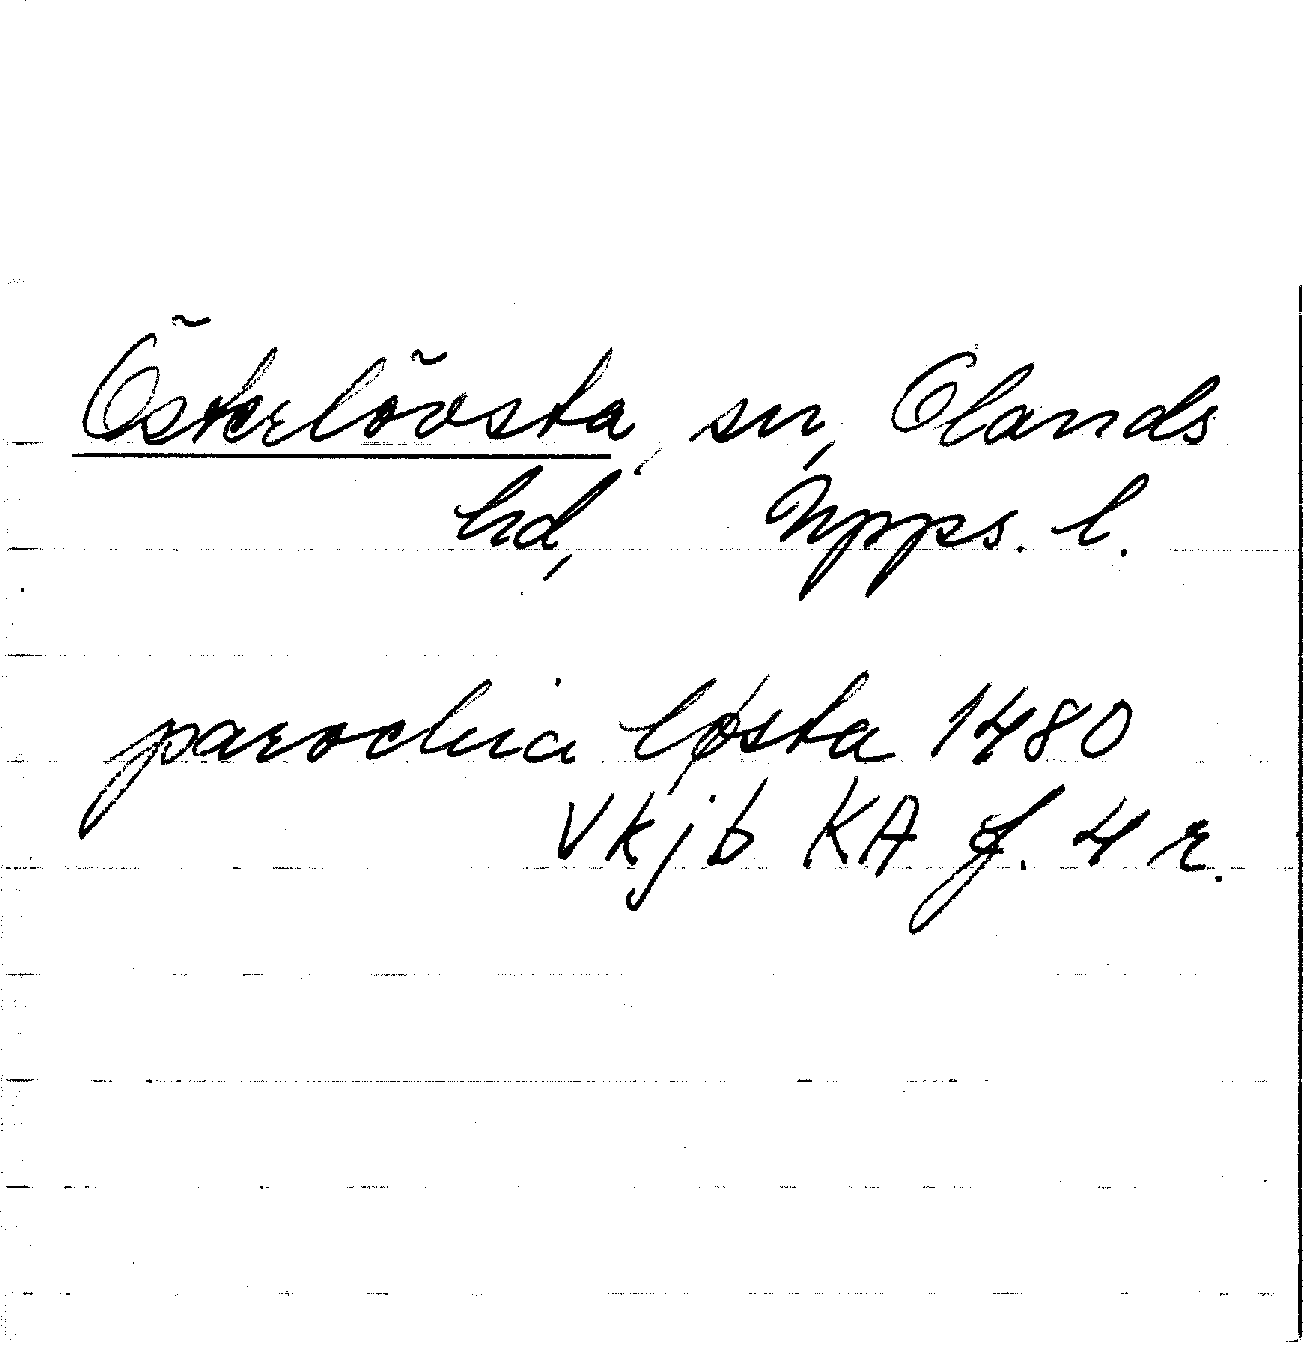 Österlövsta, sn, Olands
hd, Upps. l.
parochia løsta 1480
Vkjb KA f. 4 r.